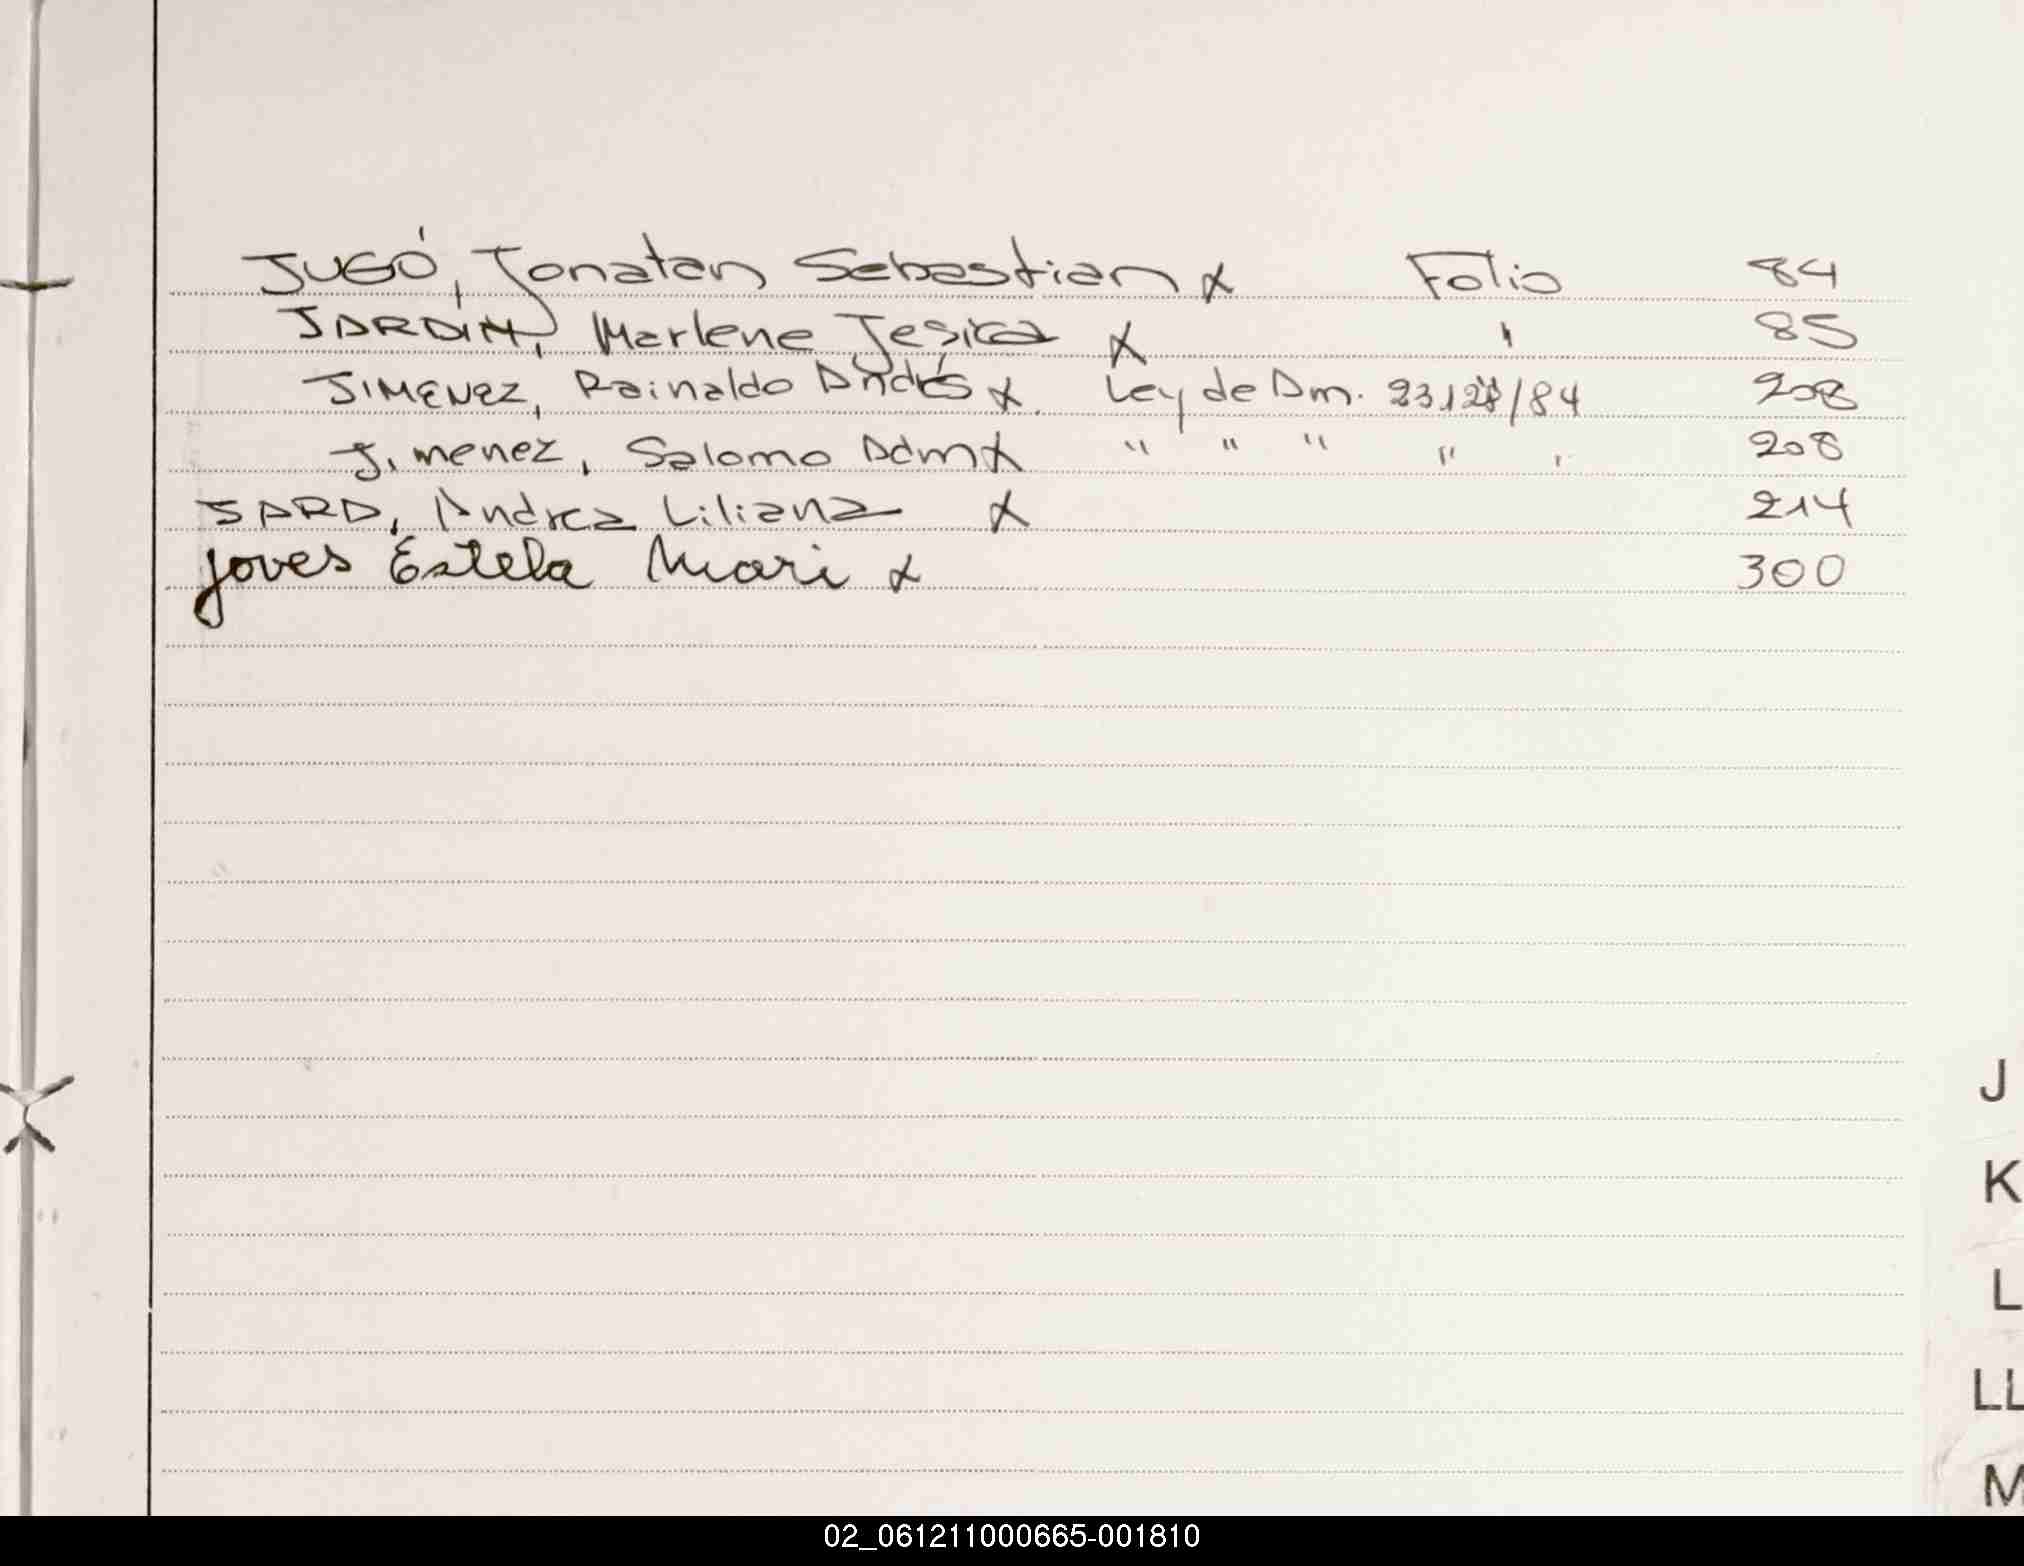 JUGÓ, Jonatan Sebastian x Folio 84
JARDÍN, Marlene Jesica x " 85
JIMENEZ, Rainaldo Andrés x. Ley de Am. 23128/84 208
Jimenez, Salomo Adam x " " " " " 208
JARA, Andrea Liliana x 214
Joves Estela Mari x 300
J
K
L
LL
M
02_061211000665-001810